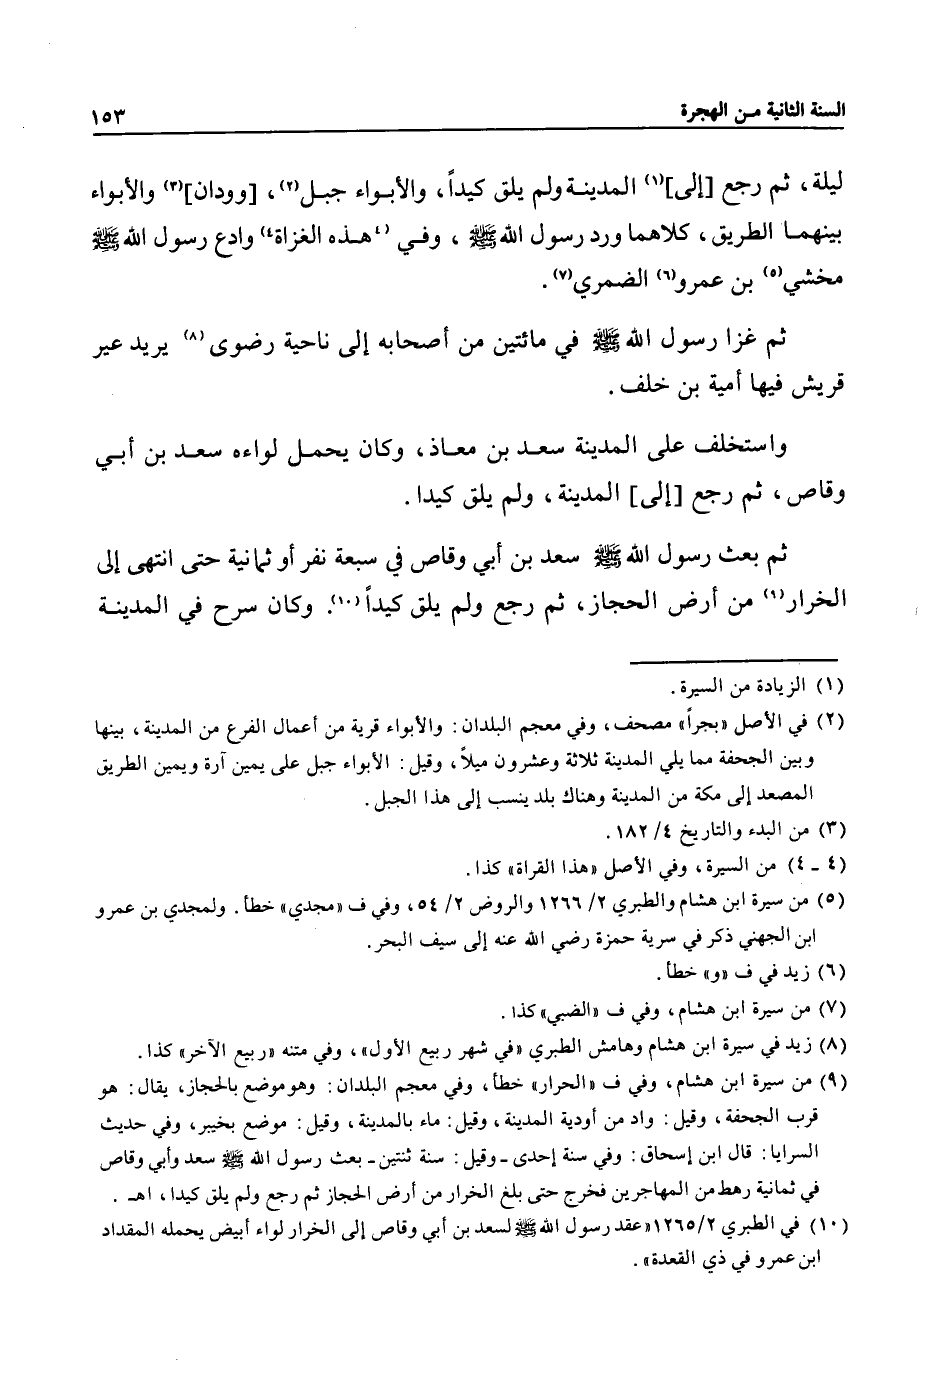 السنة الثانية من الهجرة ١٥٣
ليلة، ثم رجع [إلى](١) المدينة ولم يلق كيداً، والأبواء جبل(٢)، [وودان](٣) والأبواء
بينهما الطريق، كلاهما ورد رسول الله ﷺ ، وفي (٤هذه الغزاة٤) وادع رسول الله ﷺ
مخشي(٥) بن عمرو(٦) الضمري(٧).
ثم غزا رسول الله ﷺ في مائتين من أصحابه إلى ناحية رضوى(٨) يريد عير
قريش فيها أمية بن خلف.
واستخلف على المدينة سعد بن معاذ، وكان يحمل لواءه سعد بن أبي
وقاص، ثم رجع [إلى] المدينة، ولم يلق كيدا.
ثم بعث رسول الله ﷺ سعد بن أبي وقاص في سبعة نفر أو ثمانية حتى انتهى إلى
الخرار(٩) من أرض الحجاز، ثم رجع ولم يلق كيداً(١٠). وكان سرح في المدينة
(١) الزيادة من السيرة.
(٢) في الأصل «بجراً» مصحف، وفي معجم البلدان: والأبواء قرية من أعمال الفرع من المدينة، بينها
وبين الجحفة مما يلي المدينة ثلاثة وعشرون ميلاً، وقيل: الأبواء جبل على يمين آرة ويمين الطريق
المصعد إلى مكة من المدينة وهناك بلد ينسب إلى هذا الجبل.
(٣) من البدء والتاريخ ٤/ ١٨٢.
(٤ ـ ٤) من السيرة، وفي الأصل «هذا القراة» كذا.
(٥) من سيرة ابن هشام والطبري ٢/ ١٢٦٦ والروض ٢/ ٥٤، وفي ف «مجدي» خطأ. ولمجدي بن عمرو
ابن الجهني ذكر في سرية حمزة رضي الله عنه إلى سيف البحر.
(٦) زيد في ف «و» خطأ.
(٧) من سيرة ابن هشام، وفي ف «الضبي» كذا.
(٨) زيد في سيرة ابن هشام وهامش الطبري «في شهر ربيع الأول»، وفي متنه «ربيع الآخر» كذا.
(٩) من سيرة ابن هشام، وفي ف «الحرار» خطأ، وفي معجم البلدان: وهو موضع بالحجاز، يقال: هو
قرب الجحفة، وقيل: واد من أودية المدينة، وقيل: ماء بالمدينة، وقيل: موضع بخيبر، وفي حديث
السرايا: قال ابن إسحاق: وفي سنة إحدى ـ وقيل: سنة ثنتين ـ بعث رسول الله ﷺ سعد وأبي وقاص
في ثمانية رهط من المهاجرين فخرج حتى بلغ الخرار من أرض الحجاز ثم رجع ولم يلق كيدا، اهـ .
(١٠) في الطبري ١٢٦٥/٢ «عقد رسول الله ﷺ لسعد بن أبي وقاص إلى الخرار لواء أبيض يحمله المقداد
ابن عمرو في ذي القعدة».